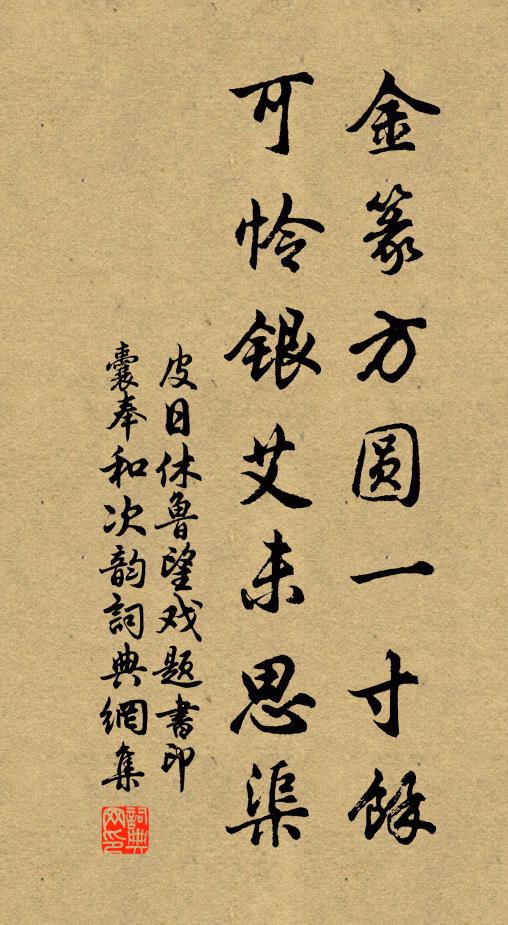 金篆方圆一寸餘
可怜银艾未思渠
皮日休鲁望戏题書印
囊奉和次韵詞典網集
詞典网印